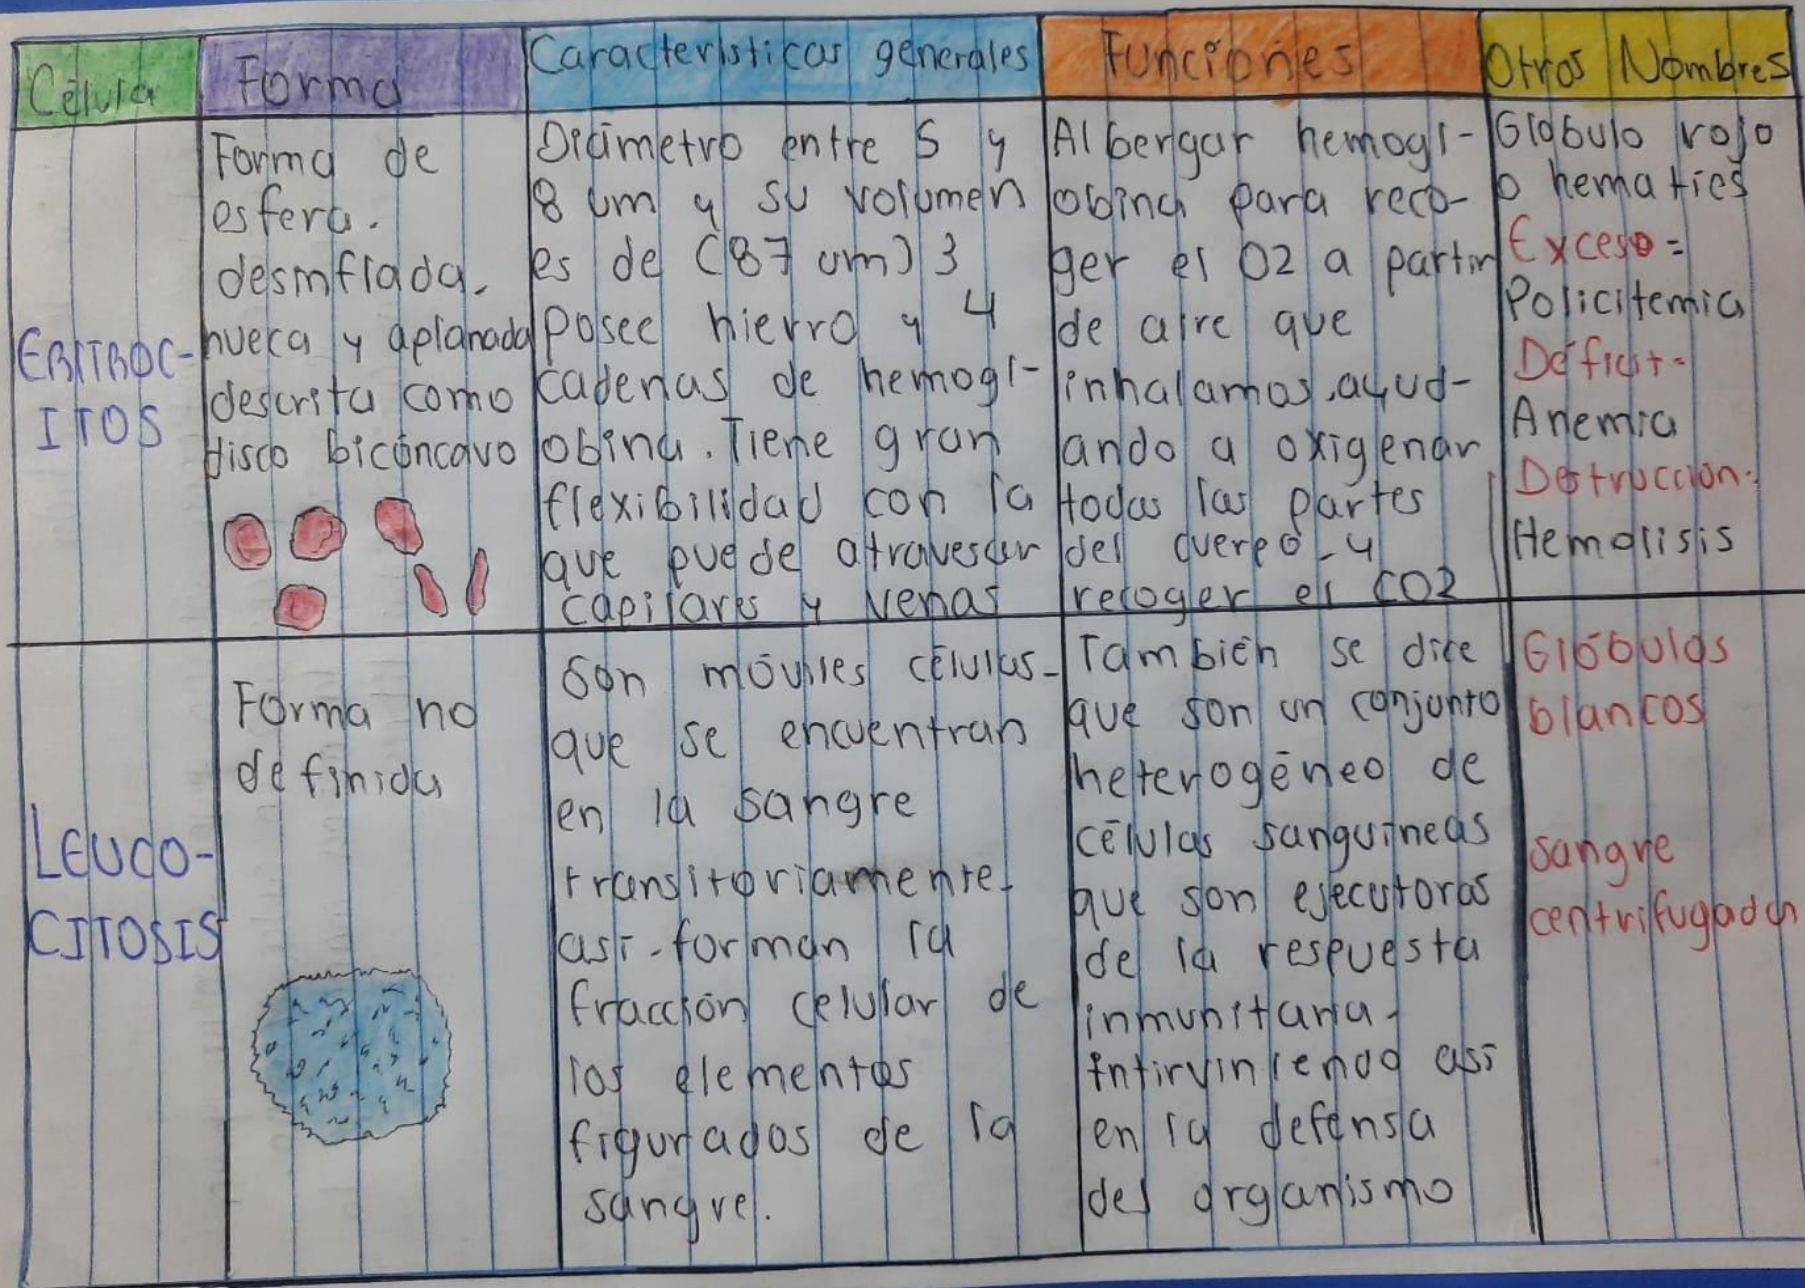 Célula
Forma
Caracteristicas generales
Funciones
Otros Nombres
ERITROC-
ITOS
Forma de
esfera.
desinflada,
hueca y aplanada
descrita como
disco bicóncavo
Diámetro entre 5 y
8 um y su volumen
es de (87 um)3
Posee hierro y 4
cadenas de hemogl-
obina. Tiene gran
flexibilidad con la
que puede atravesar
capilares y venas
Albergar hemogl-
obina para reco-
ger el O2 a partir
de aire que
inhalamos, ayud-
ando a oxigenar
todas las partes
del cuerpo y
recoger el CO2
Glóbulo rojo
o hematies
Exceso =
Policitemia
Déficit-
Anemia
Destruccion:
Hemolisis
LEUCO-
CITOSIS
Forma no
definida
Son móviles células-
que se encuentran
en la sangre
transitoriamente,
así-forman la
fracción celular de
los elementos
figurados de la
sangre.
También se dice
que son un conjunto
heterogéneo de
células sanguíneas
que son ejecutoras
de la respuesta
inmunitaria-
intirviniendo así
en la defensa
del organismo
Glóbulos
blancos
sangre
centrifugada